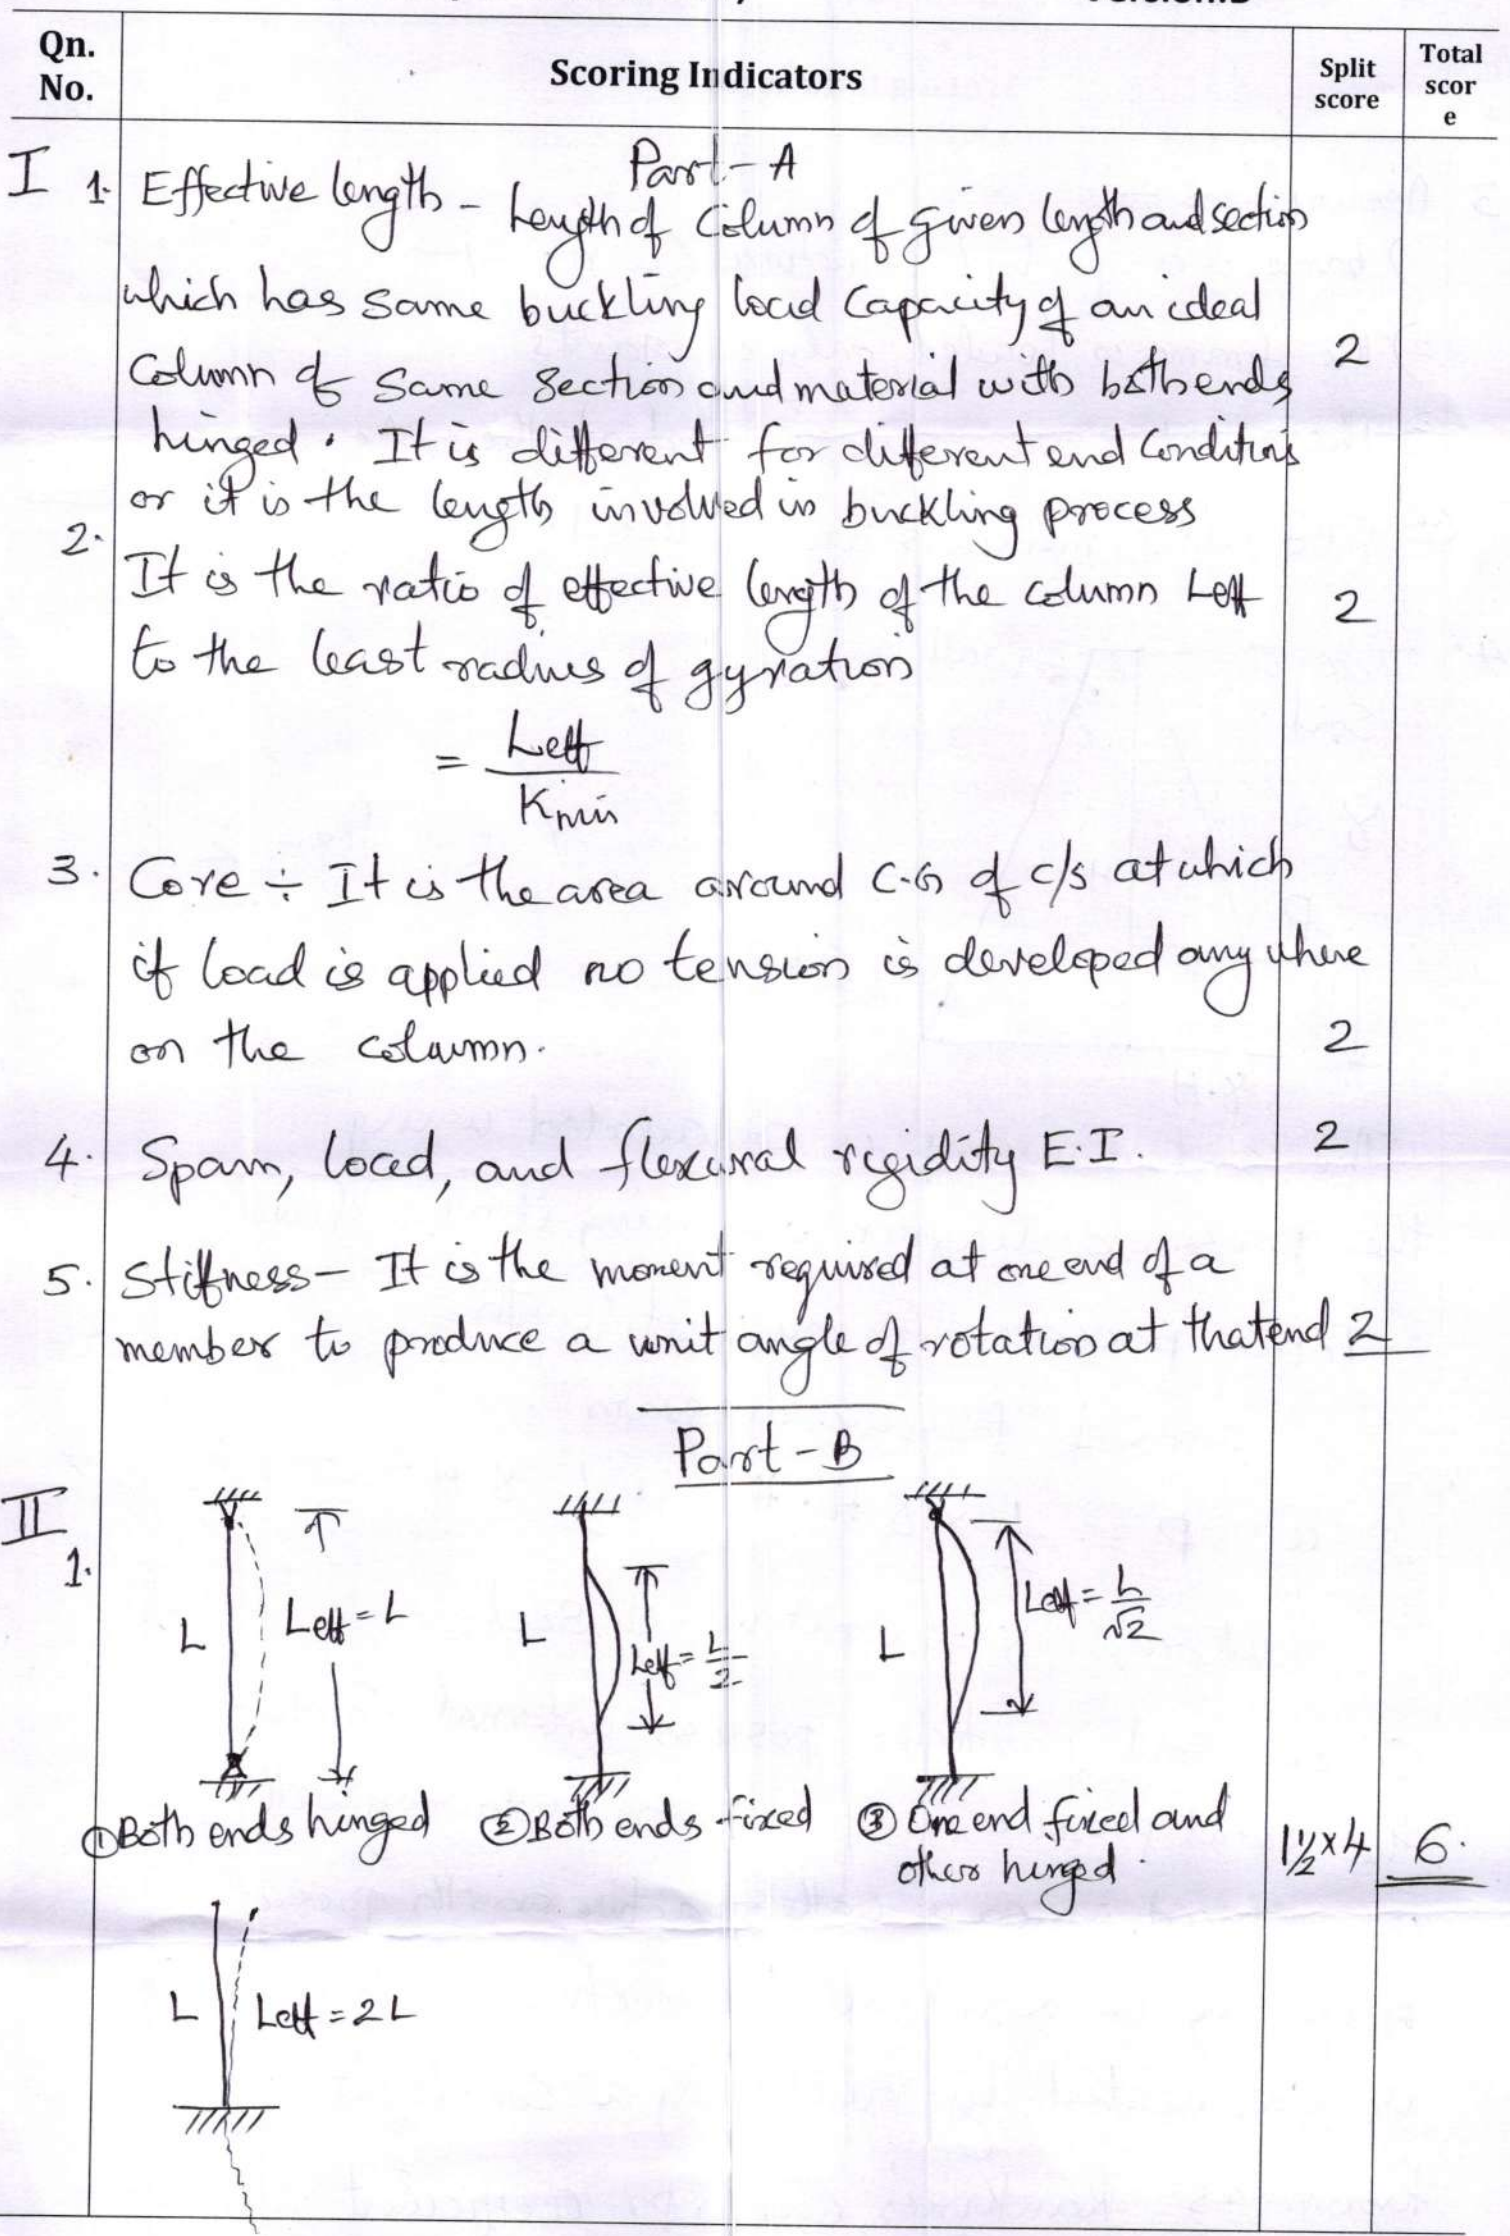 Qn. No.
Scoring Indicators
Split score
Total scor e
Part - A
I 1. Effective length - Length of Column of given length and section
which has same buckling load Capacity of an ideal
Column of same section and material with both ends 2
hinged. It is different for different end Conditions
or it is the length involved in buckling process
2. It is the ratio of effective length of the column Leff 2
to the least radius of gyration
= Leff / Kmin
3. Core ÷ It is the area around C.G of c/s at which
if load is applied no tension is developed any where
on the column. 2
4. Span, load, and flexural rigidity E.I. 2
5. Stiffness - It is the moment required at one end of a
member to produce a unit angle of rotation at that end 2
Part - B
II 1.
L Leff = L
L Leff = L/2
L Leff = L/√2
① Both ends hinged ② Both ends fixed ③ One end fixed and
other hinged. 1½ × 4 6.
L Leff = 2L